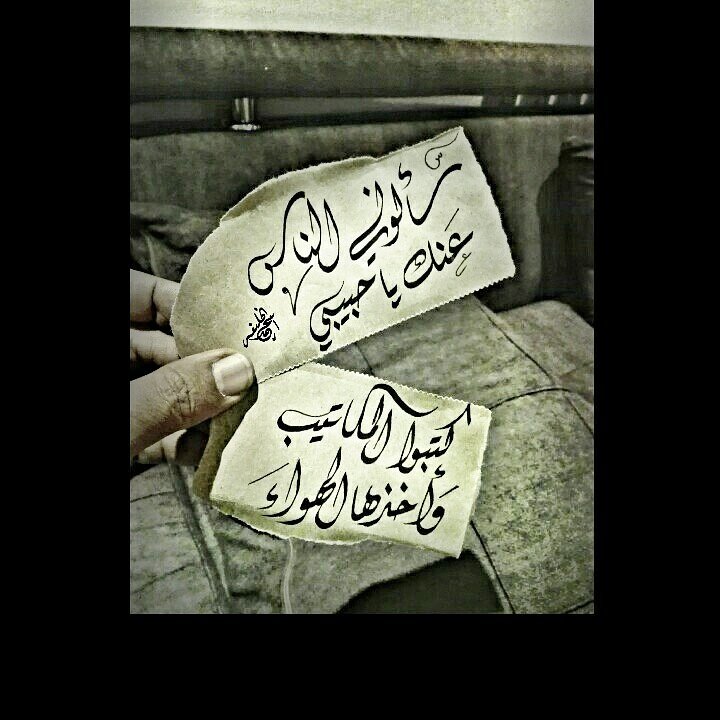 سألوني الناس
عَنك يا حبيبي
كتبوا المكاتيب
وَأخذها الهواءَ